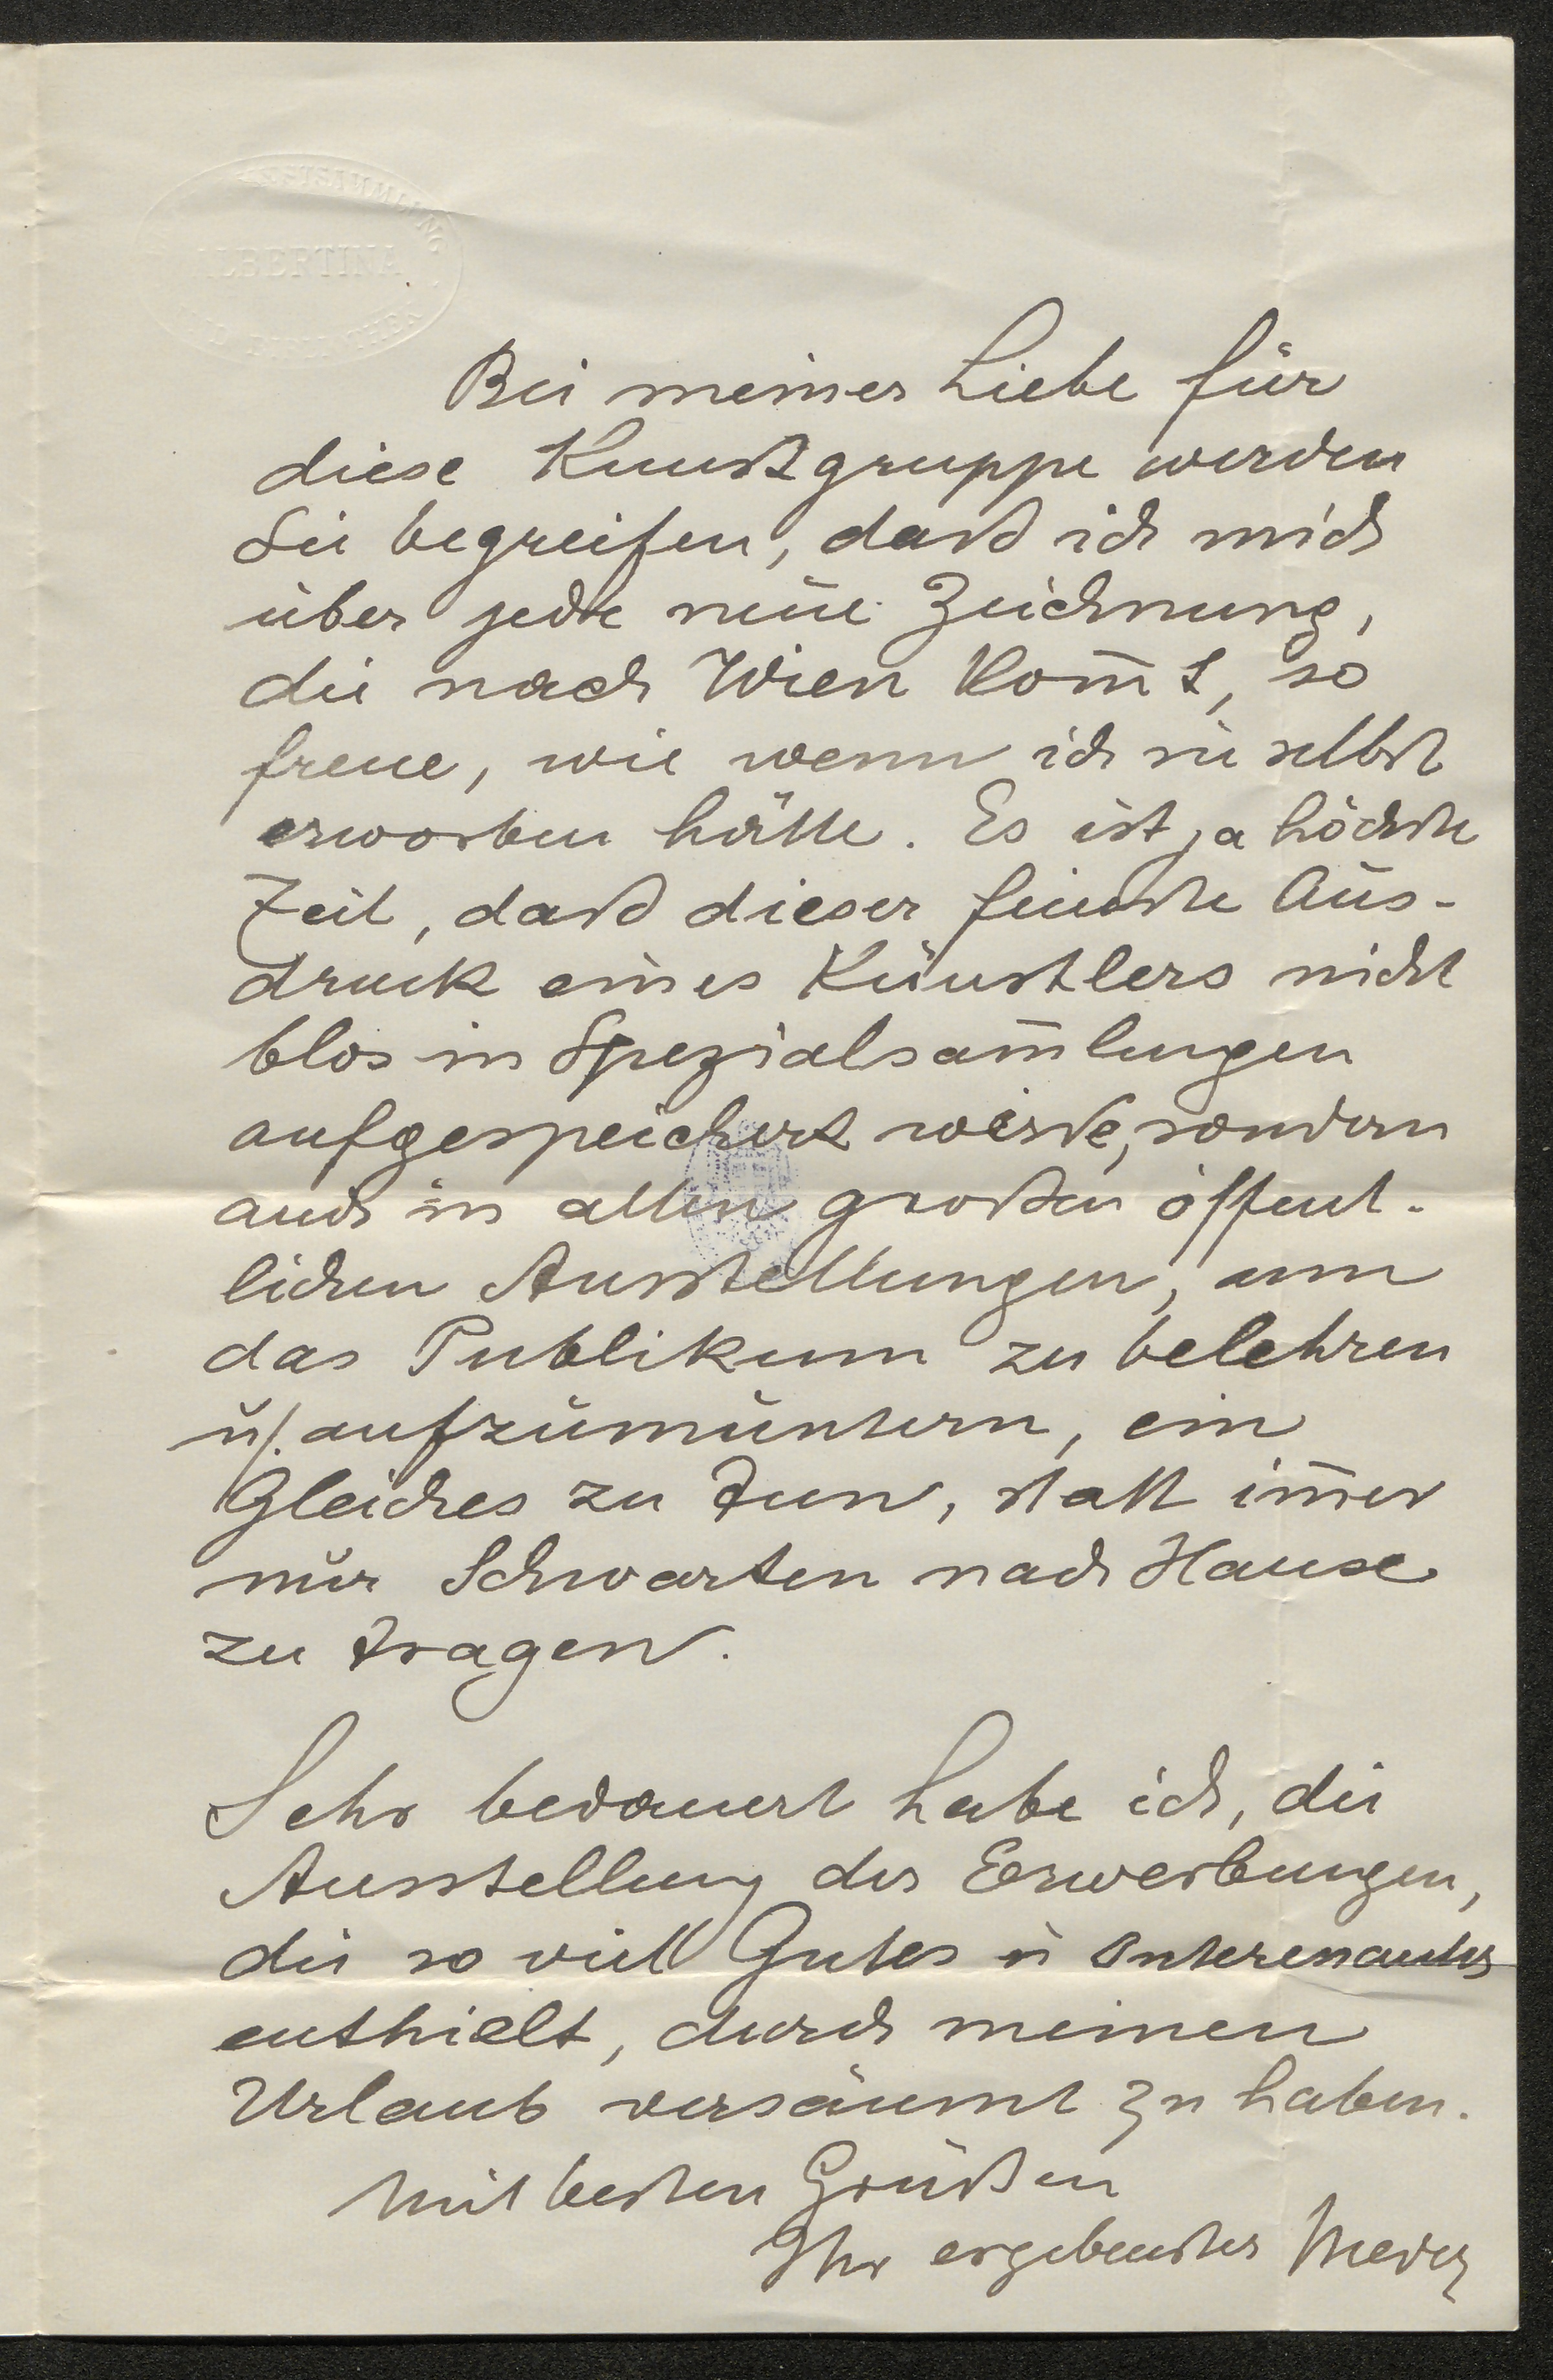 ALBERTINA
Bei meiner Liebe für
diese Kunstgruppe werden
Sie begreifen, dass ich mich
über jede neue Zeichnung,
die nach Wien kom̅t, so
freue, wie wenn ich sie selbst
erworben hätte. Es ist ja höchste
Zeit, dass dieser feinste Aus-
druck eines Künstlers nicht
blos in Spezialsam̅lungen
aufgespeichert werde, sondern
auch in allen grossen öffent-
lichen Ausstellungen, um
das Publikum zu belehren
u. aufzumuntern, ein
Gleiches zu tun, statt im̅er
nur Schwarten nach Hause
zu tragen.
Sehr bedauert habe ich, die
Ausstellung der Erwerbungen,
die so viel Gutes u Interessantes
enthielt, durch meinen
Urlaub versäumt zu haben.
Mit besten Grüssen
Ihr ergebenster Meder